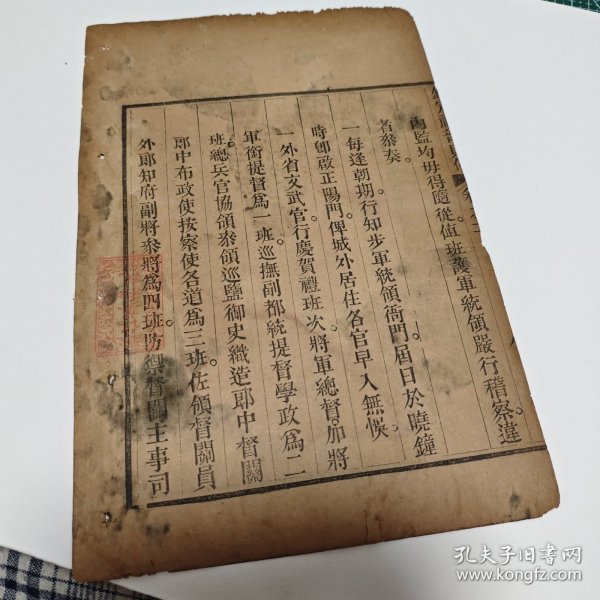 內監均毋得隨從值班護軍統領嚴行稽察違
者叅奏
一每逢朝期行知步軍統領衙門屆日於曉鐘
時即啟正陽門俾城外居住各官早入無悞
一外省文武官行慶賀禮班次將軍總督加將
軍銜提督為一班巡撫副都統提督學政為二
班總兵官協領叅領巡鹽御史織造郎中督關
郎中布政使按察使各道為三班佐領督關員
外郎知府副將叅將為四班防禦督關主事司
孔夫子旧书网
www.kongfz.com